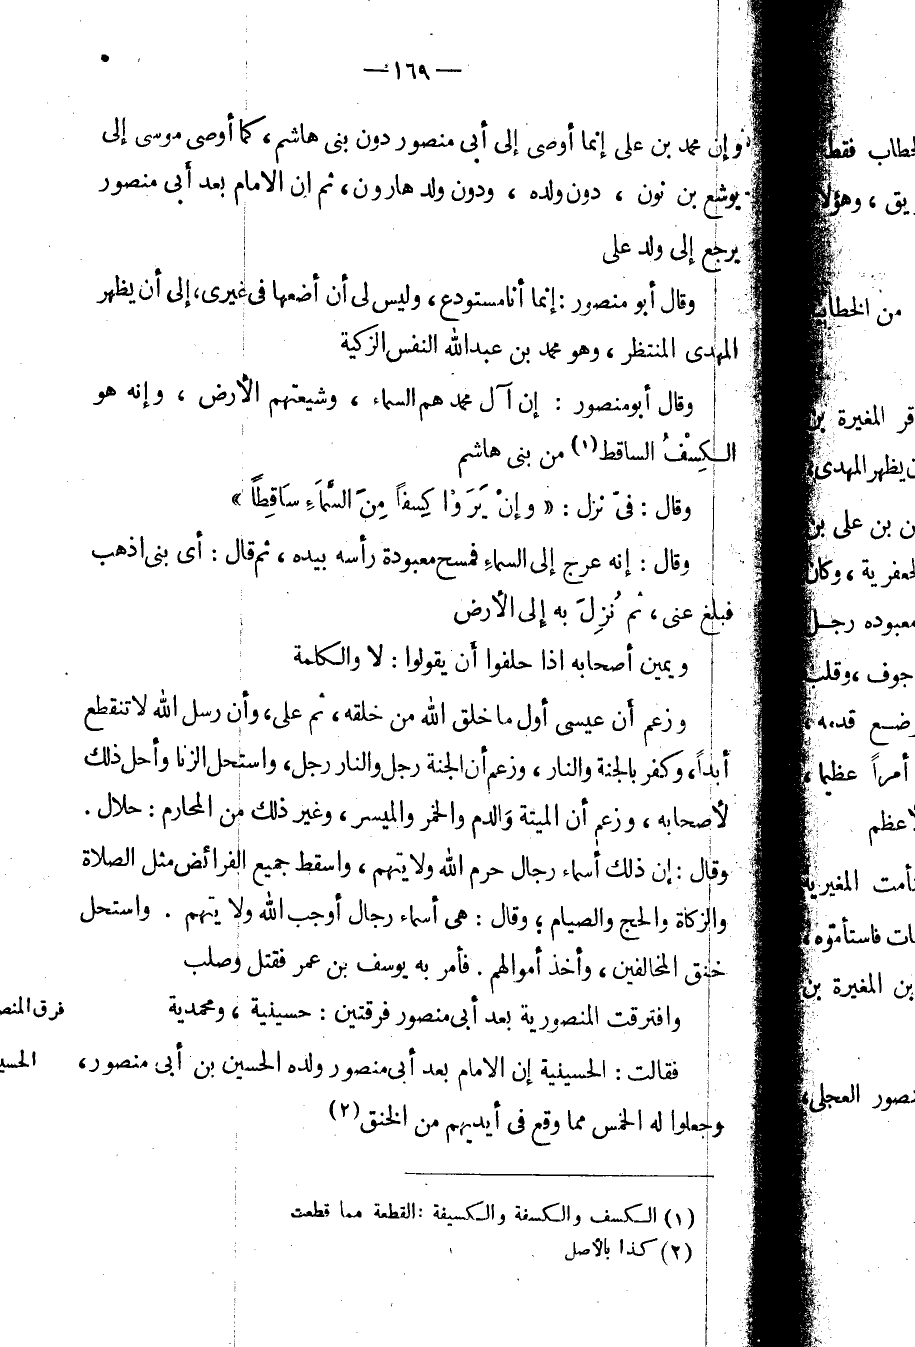 — ١٦٩ —
وإن محمد بن على إنما أوصى إلى أبى منصور دون بنى هاشم، كما أوصى موسى إلى
يوشع بن نون ، دون ولده ، ودون ولد هارون، ثم إن الامام بعد أبى منصور
يرجع إلى ولد على
وقال أبو منصور : إنما أنا مستودع، وليس لى أن أضعها فى غيرى، إلى أن يظهر
المهدى المنتظر ، وهو محمد بن عبدالله النفس الزكية
وقال أبومنصور : إن آل محمد هم السماء ، وشيعتهم الأرض ، وإنه هو
الكِسْفُ الساقط (١) من بنى هاشم
وقال : فىّ نزل : « وإنْ يَرَوْا كِسفاً مِنَ السَّمَاءِ سَاقِطاً »
وقال : إنه عرج إلى السماء فمسح معبودة رأسه بيده ، ثم قال : أى بنى اذهب
فبلغ عنى ، ثم نُزِلَ به إلى الأرض
ويمين أصحابه اذا حلفوا أن يقولوا : لا والكلمة
وزعم أن عيسى أول ما خلق الله من خلقه، ثم على، وأن رسل الله لا تنقطع
أبداً، وكفر بالجنة والنار ، وزعم أن الجنة رجل والنار رجل، واستحل الزنا وأحل ذلك
لأصحابه ، وزعم أن الميتة والدم والخمر والميسر، وغير ذلك من المحارم : حلال .
وقال : إن ذلك أسماء رجال حرم الله ولايتهم ، واسقط جميع الفرائض مثل الصلاة
والزكاة والحج والصيام ؛ وقال : هى أسماء رجال أوجب الله ولايتهم . واستحل
خنق المخالفين ، وأخذ أموالهم . فأمر به يوسف بن عمر فقتل وصلب
وافترقت المنصورية بعد أبى منصور فرقتين : حسينية ، ومحمدية
فقالت : الحسينية إن الامام بعد أبى منصور ولده الحسين بن أبى منصور،
وجعلوا له الخمس مما وقع فى أيديهم من الخنق (٢)
(١) الكسف والكسفة والكسيفة : القطعة مما قطعت
(٢) كذا بالأصل
فرق المنص
الحسي
خطاب فقط
يق ، وهؤلا
من الخطابية
قر المغيرة بن
ن يظهر المهدى،
ن بن على بن
لجعفرية ، وكان
معبوده رجل
جوف ، وقلب
ضع قدمه ،
أمراً عظيما ،
لاعظم
أمت المغيرية
ات فاستأمتوه،
بن المغيرة بن
نصور العجلى،